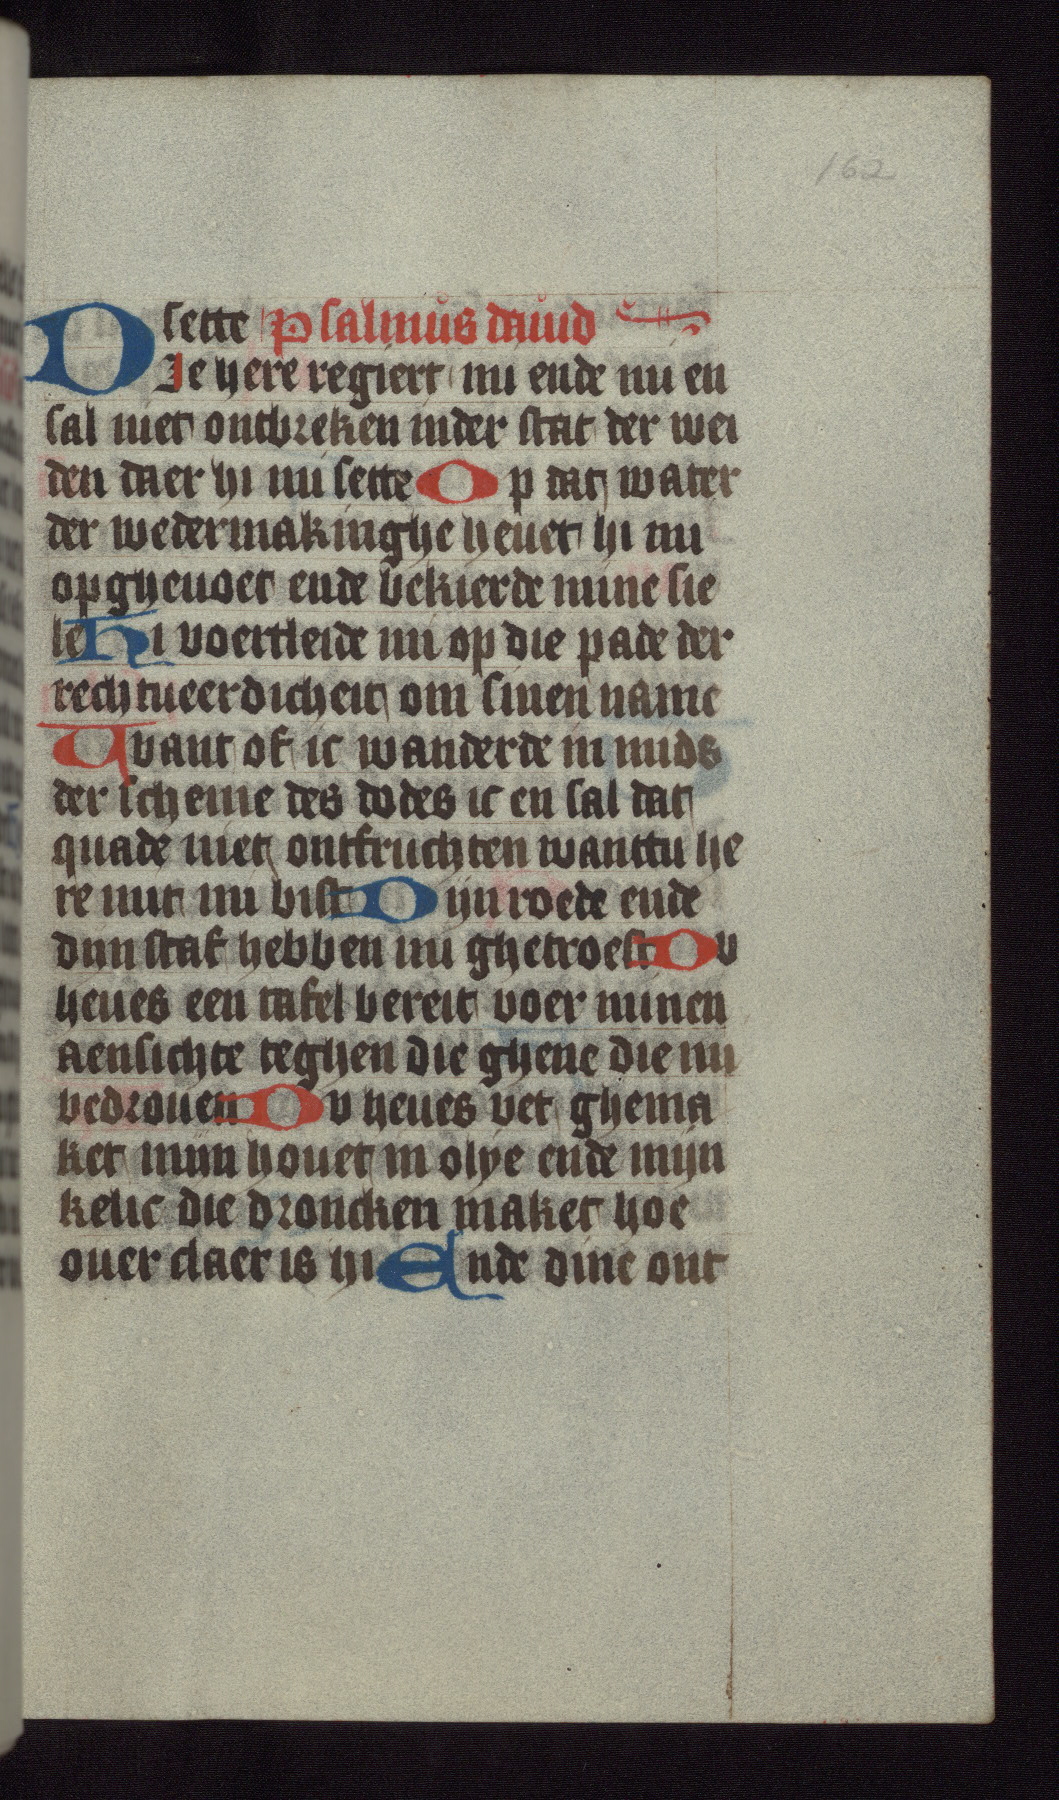 162
sette Psalmus dauid
DIe here regiert mi ende mi en
sal niet ontbreken inder stat der wei
den daer hi mi sette Op dat water
der wedermakinghe heuet hi mi
opgheuoet ende bekierde mine sie
le Hi voertleide mi op die pade der
rechtueerdicheit om sinen name
Want of ic wanderde in mids
der scheme des dodes ic en sal dat
quade niet ontfruchten wanttu he
re mit mi bist Dijn roede ende
dijn staf hebben mi ghetroest Du
heues een tafel bereit voer minen
aensichte teghen die ghene die mi
bedrouen Du heues vet ghema
ket mijn houet in olye ende mijn
kelic die droncken maket hoe
ouer claer is hi Ende dine ont